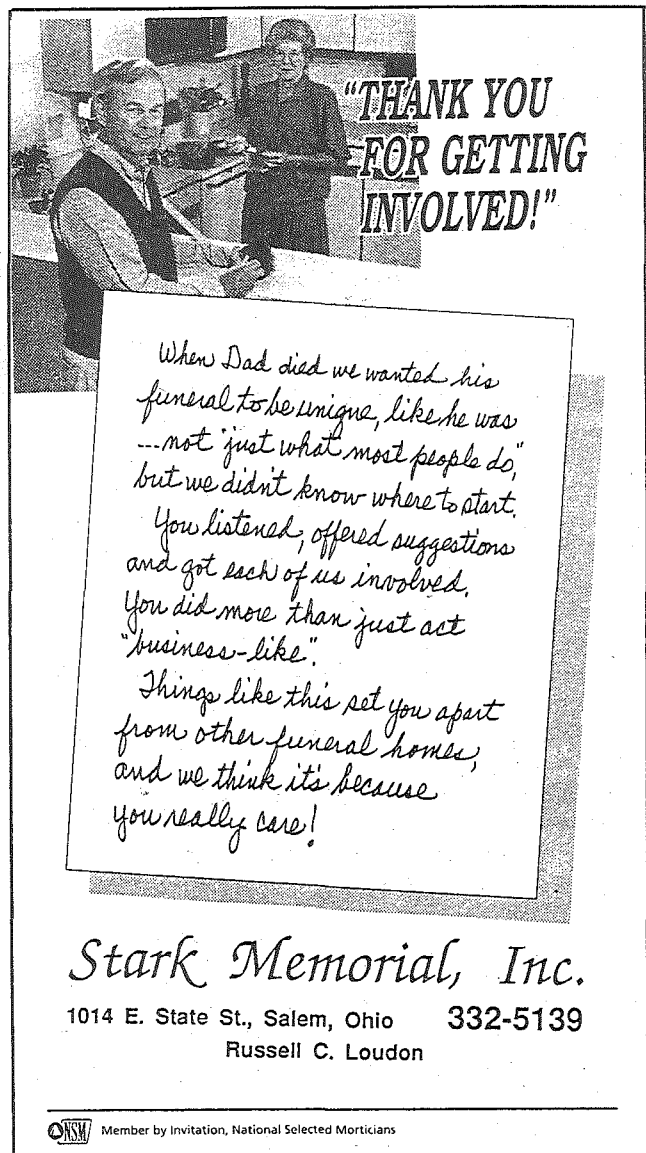 "THANK YOU
FOR GETTING
INVOLVED!"
When Dad died we wanted his
funeral to be unique, like he was
...not "just what most people do,"
but we didn't know where to start.
You listened, offered suggestions
and got each of us involved.
You did more than just act
"business-like".
Things like this set you apart
from other funeral homes,
and we think it's because
you really care!
Stark Memorial, Inc.
1014 E. State St., Salem, Ohio 332-5139
Russell C. Loudon
NSM Member by Invitation, National Selected Morticians